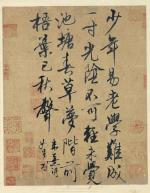 少年易老學難成
一寸光陰不可輕未覺
池塘春草夢階前
梧葉已秋聲